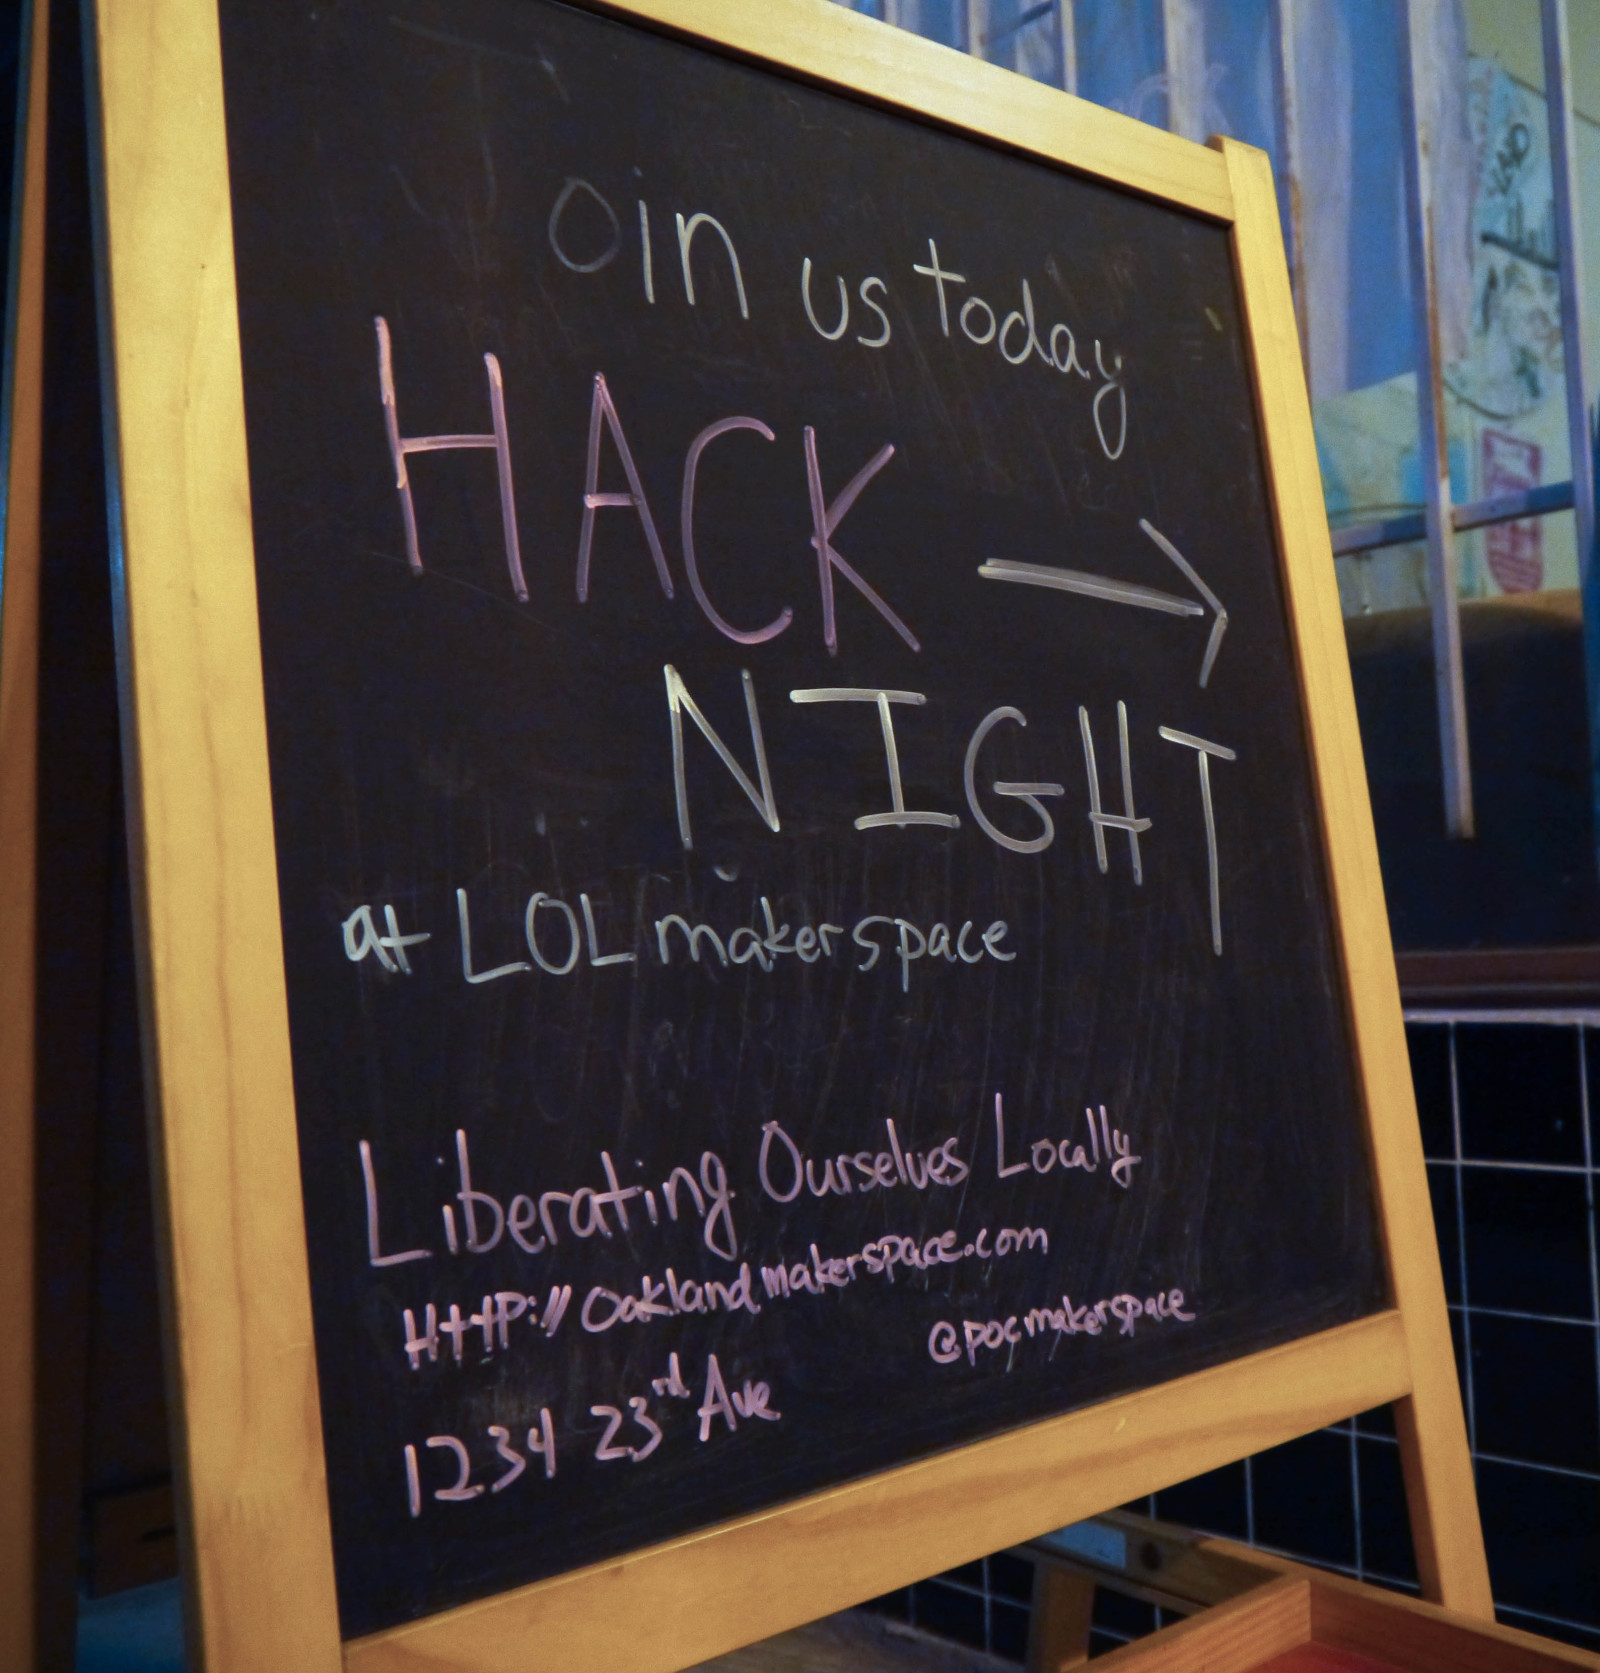 oin us today
HACK
NIGHT
at LOL makerspace
Liberating Ourselves Locally
HttP:// Oaklandmakerspace.com
@pocmakerspace
1234 23rd Ave